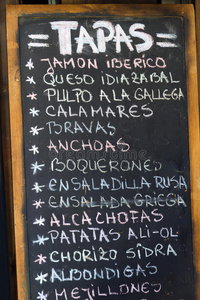 = TAPAS =
* JAMON IBERICO
* QUESO IDIAZABAL
* PULPO A LA GALLEGA
* CALAMARES
* BRAVAS
* ANCHOAS
* BOQUERONES
* ENSALADILLA RUSA
* ENSALADA GRIEGA
* ALCACHOFAS
* PATATAS ALI-OL
* CHORIZO SIDRA
* ALBONDIGAS
* MEJILLONES